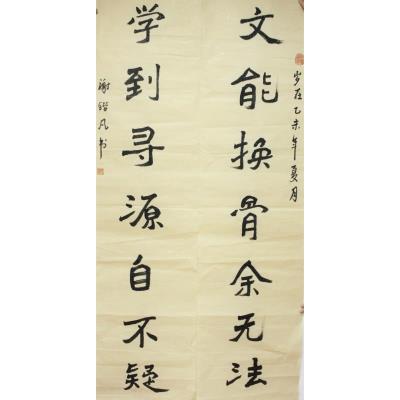 文能换骨余无法
岁在乙未年夏月
学到寻源自不疑
谢锴凡书